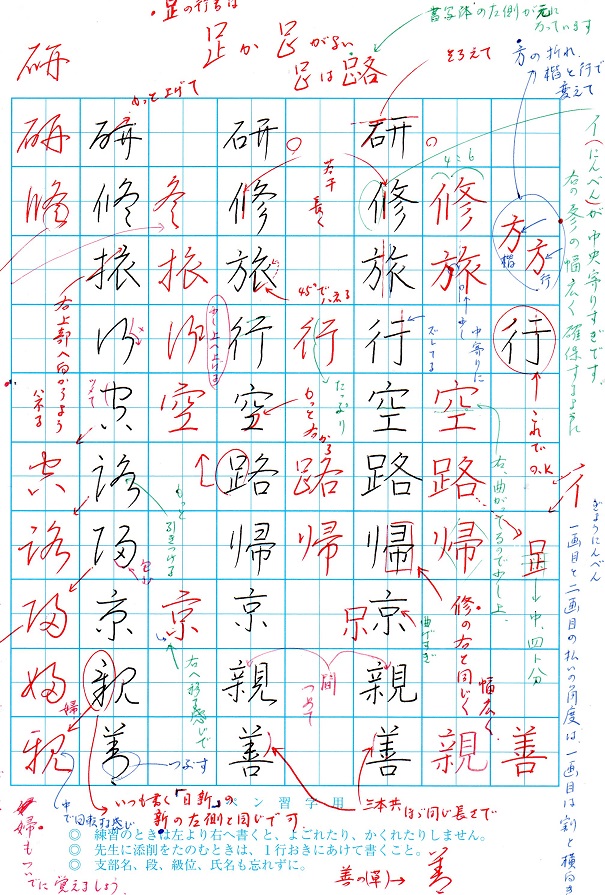 足の行書は
足か足がよい
足は路
書写体の左側が元になっています
そろえて
方の折れ、
楷と行で
変えて
もっと上げて
イ(にんべん)が中央寄りすぎです。
右の彡の幅広く確保するように
4:6
若干長く
方
方
楷
行
45°でハネる
少し上へ上げる
右上部へ向かうよう
ハネる
たっぷり
もっと右から
中寄りに
ズレてる
これで
O.K
右、曲がってるので少し上、
もっと
引きつける
ぎょうにんべん
一画目と二画目の払いの角度は、一画目は割と横向き
中、四ト分
曲げすぎ
修の右と同じく
幅広く、
右へ移る感じで
間
つめて
つぶす
研
研 研 研 研
修 修 修 修 修 修
旅 旅 旅 旅 旅
行 行 行 行 行 行
空 空 空 空 空
空 路 路 路 路 路
路 帰 帰 帰 帰 帰 足
帰 京 京 京 京
婦 親 親 親
婦
親 善 善 善 親 善
いつも書く「日新」の
新の左側と同じで可
三本共ほぼ同じ長さで
婦もついでに覚えましょう。
善の(草)→善
ペン習字用
◎ 練習のときは左より右へ書くと、よごれたり、かくれたりしません。
◎ 先生に添削をたのむときは、1行おきにあけて書くこと。
◎ 支部名、段、級位、氏名も忘れずに。